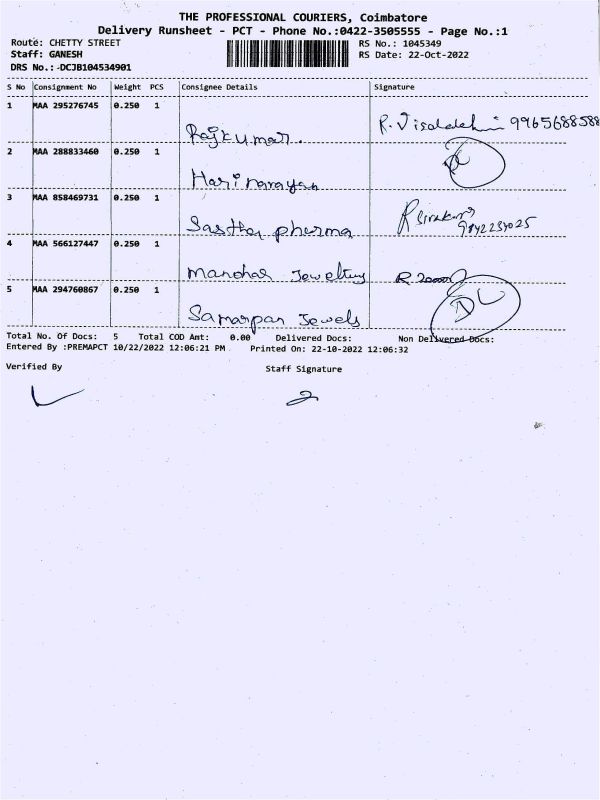 THE PROFESSIONAL COURIERS, Coimbatore
Delivery Runsheet - PCT - Phone No.:0422-3505555 - Page No.:1
Route: CHETTY STREET
RS No.: 1045349
Staff: GANESH
RS Date: 22-Oct-2022
DRS No.:-DCJB104534901
S No Consignment No Weight PCS Consignee Details Signature
1 MAA 295276745 0.250 1
Rajkumar. R. Visalakshi 9965688588
2 MAA 288833460 0.250 1
Hari narayan
3 MAA 858469731 0.250 1
Sastha pharma
4 MAA 566127447 0.250 1
Manohar
5 MAA 294760867 0.250 1
Samarpan Jewels
Total No. Of Docs: 5 Total COD Amt: 0.00 Delivered Docs: Non Delivered Docs:
Entered By :PREMAPCT 10/22/2022 12:06:21 PM Printed On: 22-10-2022 12:06:32
Verified By Staff Signature